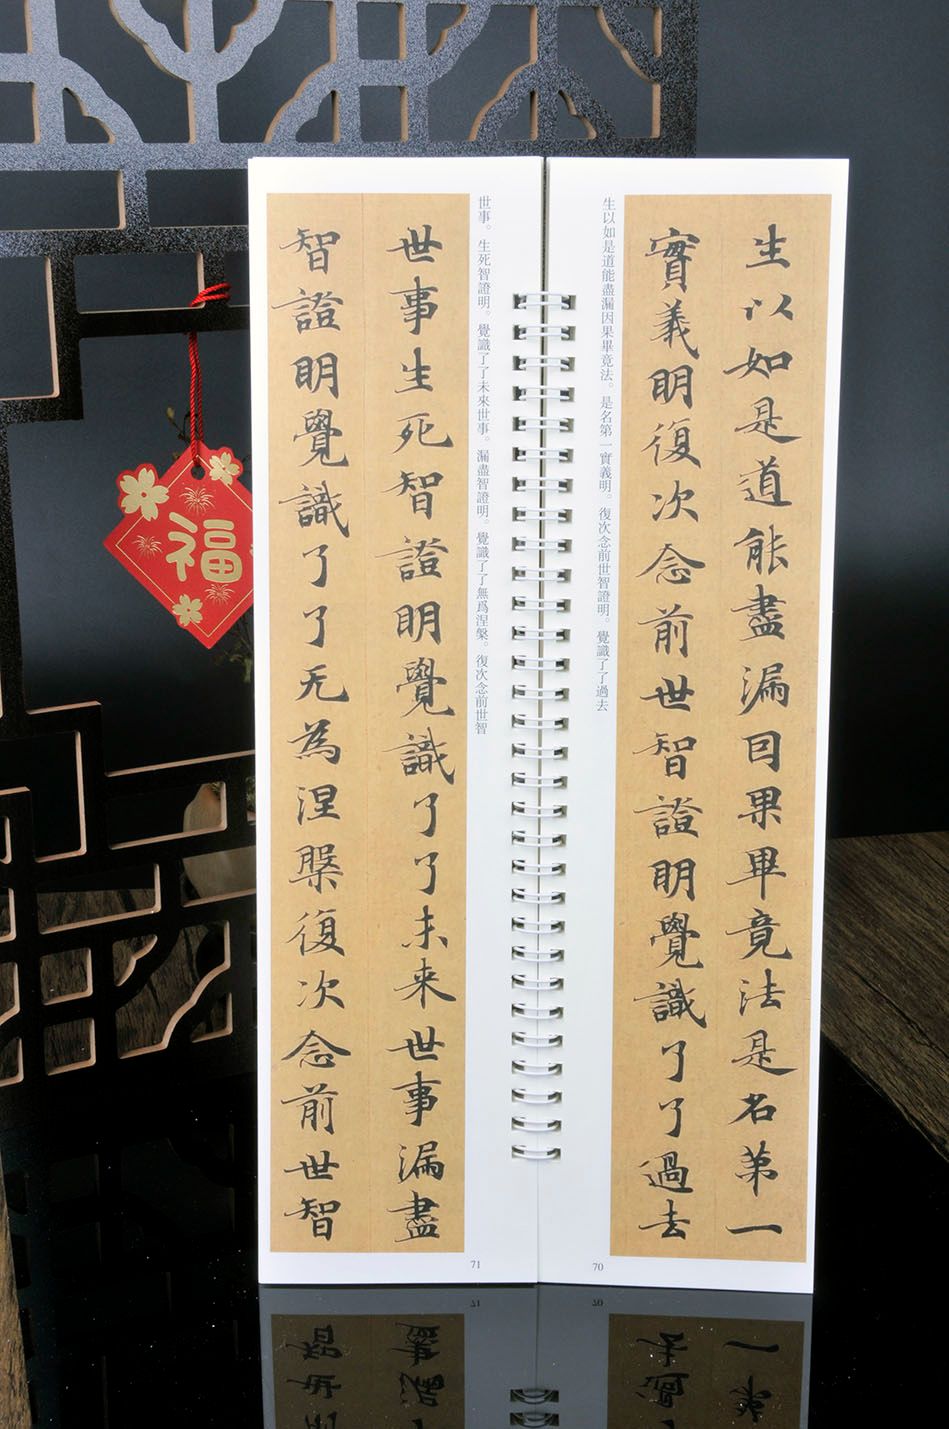 生以如是道能盡漏囙果畢竟法是名第一
實義明復次念前世智證明覺識了了過去
生以如是道能盡漏因果畢竟法。是名第一實義明。復次念前世智證明。覺識了了過去
70
世事。生死智證明。覺識了了未來世事。漏盡智證明。覺識了了無爲涅槃。復次念前世智
世事生死智證明覺識了了未来世事漏盡
智證明覺識了了无為涅槃復次念前世智
71
福